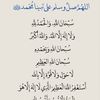 اللهم صل وسلم على نبينا محمد ﷺ
سبحان الله، والحمد لله
ولا إله إلا الله، والله أكبر
سبحان الله وبحمده
سبحان الله العظيم
لا حول ولا قوة إلا بالله
أستغفر الله العظيم الذي لا إله
إلا هو الحي القيوم وأتوب إليه